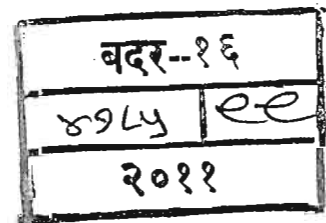 बदर--१६
४१८५ | ९९
२०११